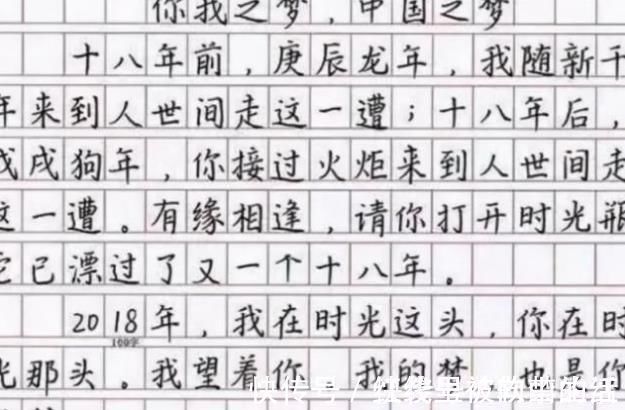 你我之梦，中国之梦
十八年前，庚辰龙年，我随新千
年来到人世间走这一遭；十八年后，
戊戌狗年，你接过火炬来到人世间走
这一遭。有缘相逢，请你打开时光瓶
它已漂过了又一个十八年。
2018年，我在时光这头，你在时
100字
光那头。我望着你 我的梦 也是你
快传号/